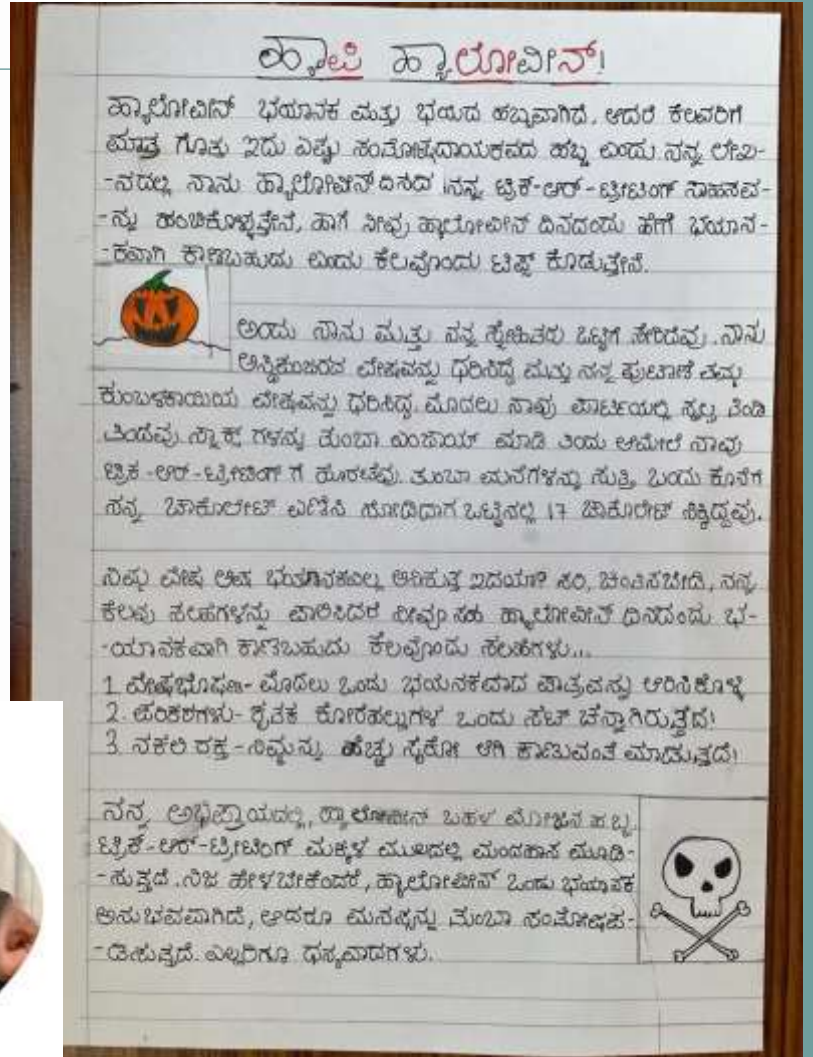 ಹ್ಯಾಪಿ ಹ್ಯಾಲೋವೀನ್!
ಹ್ಯಾಲೋವೀನ್ ಭಯಾನಕ ಮತ್ತು ಭಯದ ಹಬ್ಬವಾಗಿದೆ, ಆದರೆ ಕೆಲವರಿಗೆ
ಮಾತ್ರ ಗೊತ್ತು ಇದು ಎಷ್ಟು ಸಂತೋಷದಾಯಕವಾದ ಹಬ್ಬ ಎಂದು. ನನ್ನ ಲೇಖ-
-ನದಲ್ಲಿ ನಾನು ಹ್ಯಾಲೋವೀನ್ ದಿನದ ನನ್ನ ಟ್ರಿಕ್-ಆರ್-ಟ್ರೀಟಿಂಗ್ ಸಾಹಸವ-
-ನ್ನು ಹಂಚಿಕೊಳ್ಳುತ್ತೇನೆ, ಹಾಗೆ ನೀವು ಹ್ಯಾಲೋವೀನ್ ದಿನದಂದು ಹೇಗೆ ಭಯಾನ-
-ಕವಾಗಿ ಕಾಣಬಹುದು ಎಂದು ಕೆಲವೊಂದು ಟಿಪ್ಸ್ ಕೊಡುತ್ತೇನೆ.
ಅಂದು ನಾನು ಮತ್ತು ನನ್ನ ಸ್ನೇಹಿತರು ಒಟ್ಟಿಗೆ ಸೇರಿದೆವು. ನಾನು
ಅಸ್ಥಿಪಂಜರದ ವೇಷವನ್ನು ಧರಿಸಿದ್ದೆ ಮತ್ತು ನನ್ನ ಪುಟಾಣಿ ತಮ್ಮ
ಕುಂಬಳಕಾಯಿಯ ವೇಷವನ್ನು ಧರಿಸಿದ್ದ. ಮೊದಲು ನಾವು ಪಾರ್ಟಿಯಲ್ಲಿ ಸ್ವಲ್ಪ ತಿಂಡಿ
ತಿಂದೆವು. ಸ್ನಾಕ್ಸ್ ಗಳನ್ನು ತುಂಬಾ ಎಂಜಾಯ್ ಮಾಡಿ ತಿಂದು ಆಮೇಲೆ ನಾವು
ಟ್ರಿಕ್-ಆರ್-ಟ್ರೀಟಿಂಗ್ ಗೆ ಹೊರಟೆವು. ತುಂಬಾ ಮನೆಗಳನ್ನು ಸುತ್ತಿ, ಒಂದು ಕೊನೆಗೆ
ನನ್ನ ಚಾಕೊಲೇಟ್ ಎಣಿಸಿ ನೋಡಿದಾಗ ಒಟ್ಟಿನಲ್ಲಿ 17 ಚಾಕೊಲೇಟ್ ಸಿಕ್ಕಿದ್ದವು.
ನಿಮ್ಮ ವೇಷ ಅಷ್ಟು ಭಯಾನಕವಿಲ್ಲ ಅನಿಸುತ್ತ ಇದೆಯಾ? ಸರಿ, ಚಿಂತಿಸಬೇಡಿ, ನನ್ನ
ಕೆಲವು ಸಲಹೆಗಳನ್ನು ಪಾಲಿಸಿದರೆ ನೀವೂ ಸಹ ಹ್ಯಾಲೋವೀನ್ ದಿನದಂದು ಭ-
-ಯಾನಕವಾಗಿ ಕಾಣಬಹುದು ಕೆಲವೊಂದು ಸಲಹೆಗಳು...
1. ವೇಷಭೂಷಣ- ಮೊದಲು ಒಂದು ಭಯನಕವಾದ ಪಾತ್ರವನ್ನು ಆರಿಸಿಕೊಳ್ಳಿ
2. ಪರಿಕರಗಳು- ಕೃತಕ ಕೋರೆಹಲ್ಲುಗಳ ಒಂದು ಸೆಟ್ ಚೆನ್ನಾಗಿರುತ್ತದೆ!
3. ನಕಲಿ ರಕ್ತ - ನಿಮ್ಮನ್ನು ಹೆಚ್ಚು ಸೈಕೋ ಆಗಿ ಕಾಣುವಂತೆ ಮಾಡುತ್ತದೆ!
ನನ್ನ ಅಭಿಪ್ರಾಯದಲ್ಲಿ, ಹ್ಯಾಲೋವೀನ್ ಬಹಳ ಮೋಜಿನ ಹಬ್ಬ.
ಟ್ರಿಕ್-ಆರ್-ಟ್ರೀಟಿಂಗ್ ಮಕ್ಕಳ ಮುಖದಲ್ಲಿ ಮಂದಹಾಸ ಮೂಡಿ-
-ಸುತ್ತದೆ. ನಿಜ ಹೇಳಬೇಕೆಂದರೆ, ಹ್ಯಾಲೋವೀನ್ ಒಂದು ಭಯಾನಕ
ಅನುಭವವಾಗಿದೆ, ಆದರೂ ಮನಸ್ಸನ್ನು ತುಂಬಾ ಸಂತೋಷಪ-
-ಡಿಸುತ್ತದೆ. ಎಲ್ಲರಿಗೂ ಧನ್ಯವಾದಗಳು.